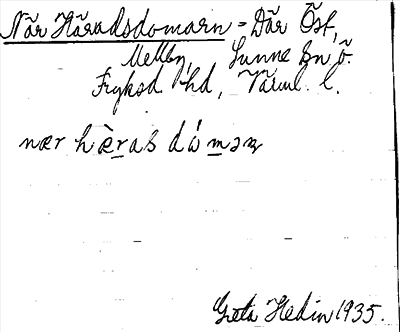 När Häradsdomarn = Där Öst,
Mellby, Sunne sn ö.
Fryksd. hd, Värml. l.
nær hæ̀ras dómaɳ
Greta Hedin 1935.